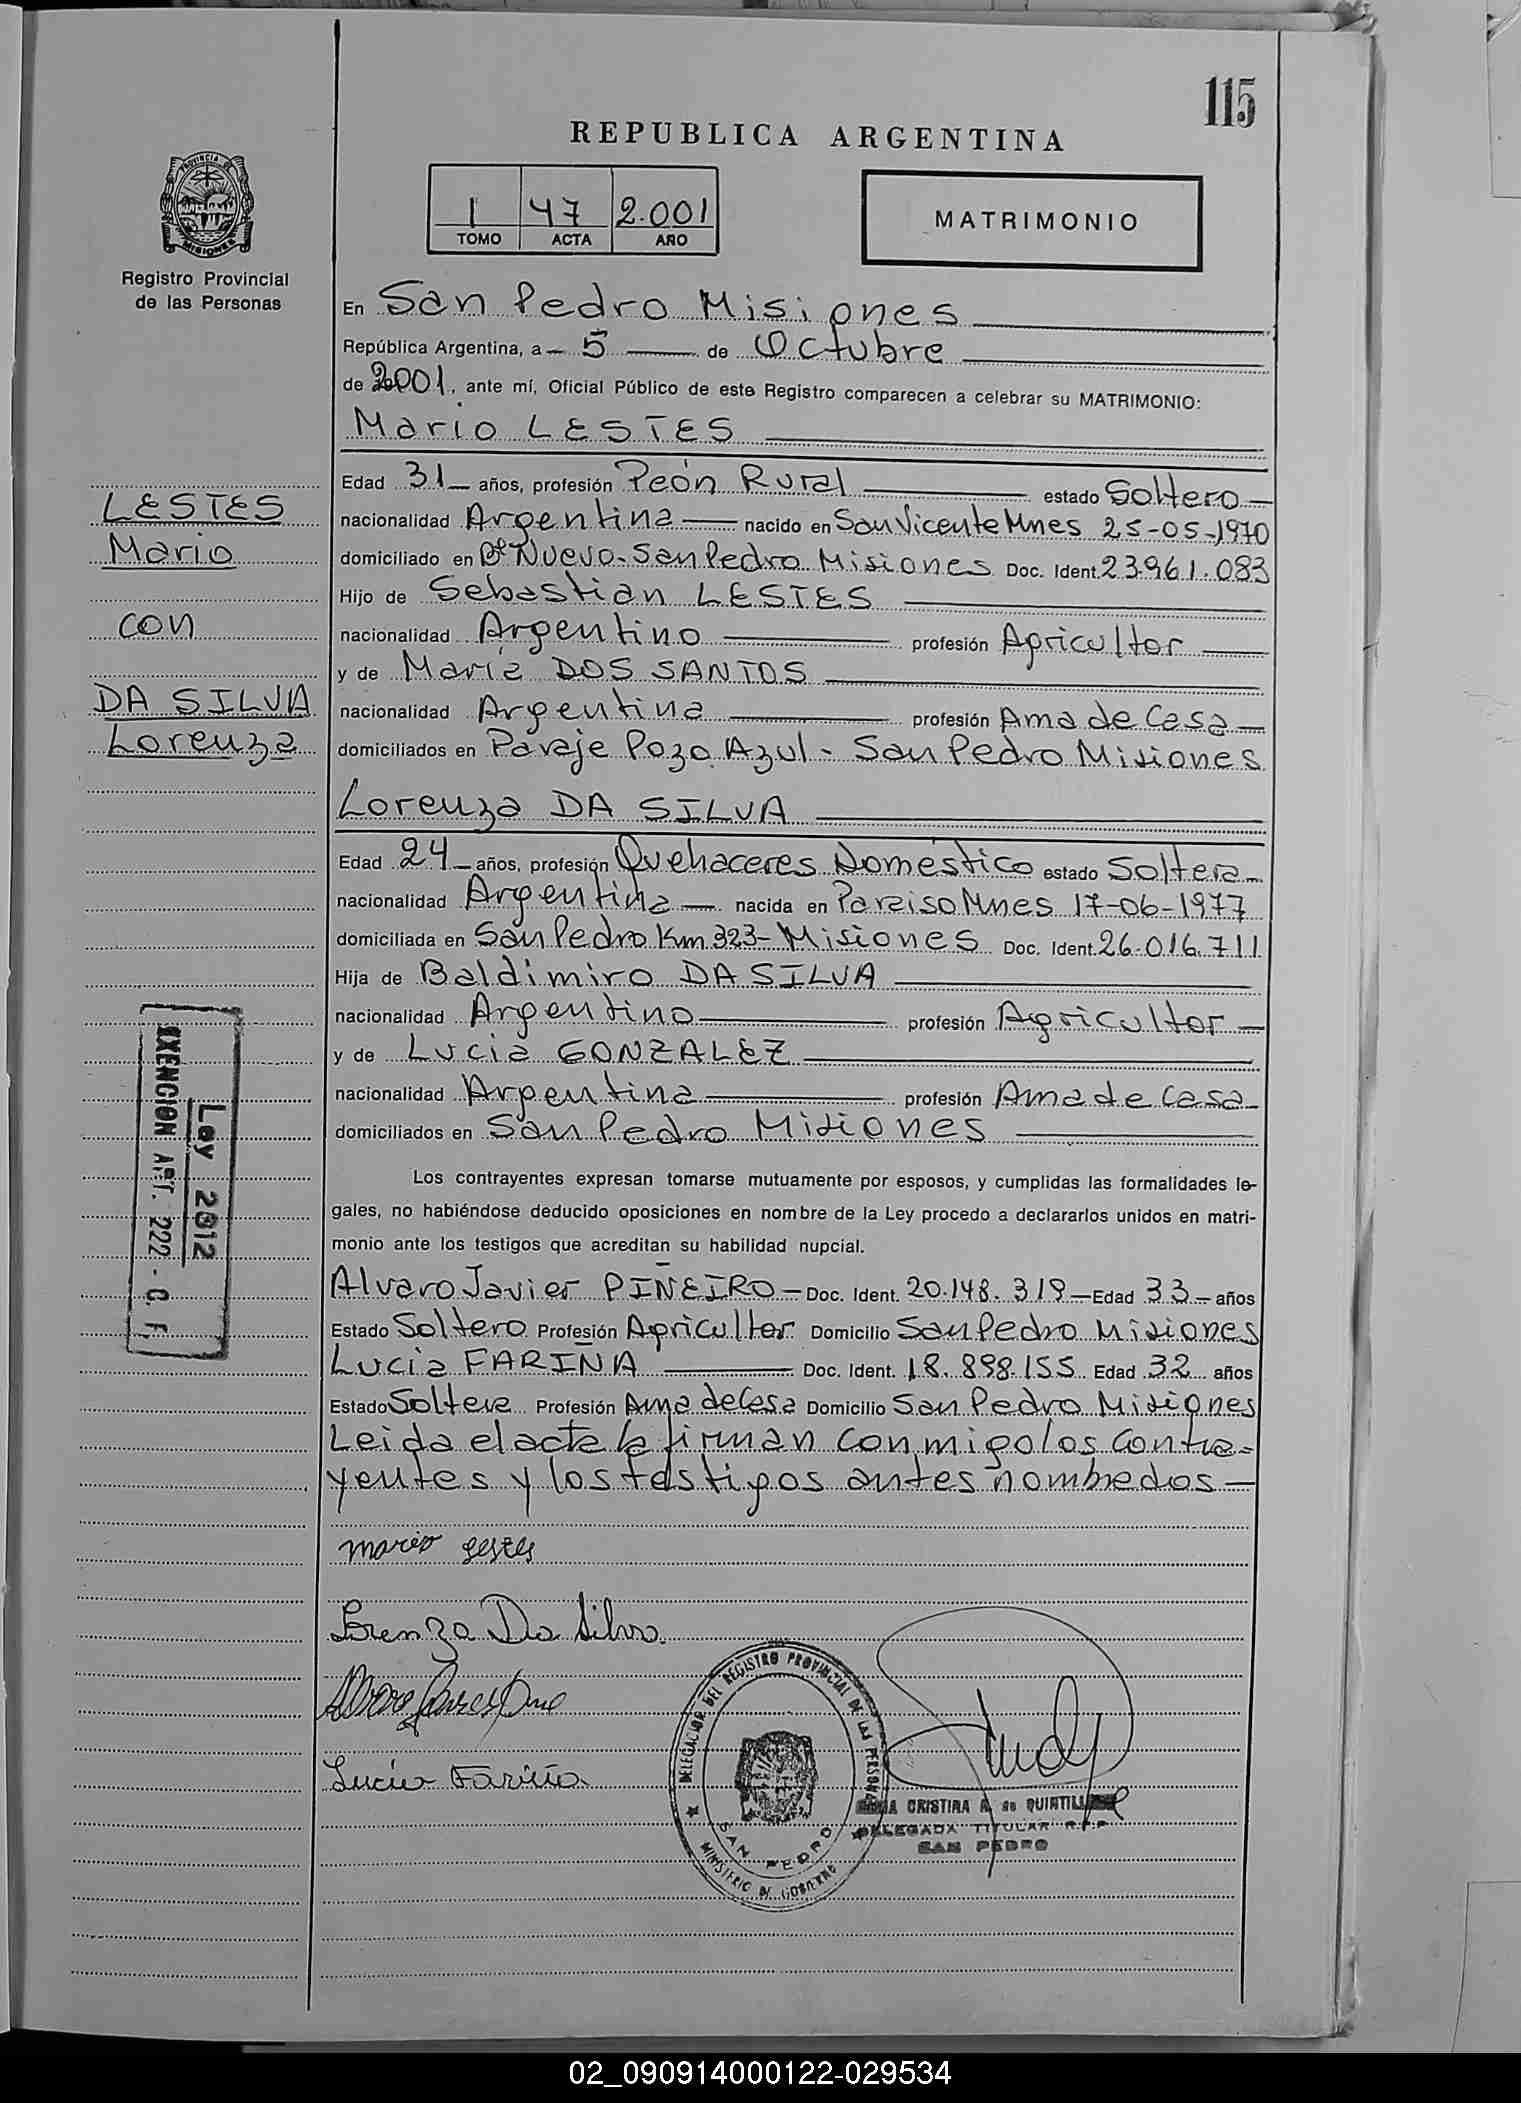 115
REPUBLICA ARGENTINA
1 47 2.001
TOMO ACTA AÑO
MATRIMONIO
PROVINCIA DE MISIONES
Registro Provincial
de las Personas
En San Pedro Misiones
República Argentina, a 5 de Octubre
de 2001, ante mí, Oficial Público de este Registro comparecen a celebrar su MATRIMONIO:
Mario LESTES
Edad 31 años, profesión Peón Rural estado Soltero
nacionalidad Argentina nacido en San Vicente Mnes 25-05-1970
domiciliado en Bº Nuevo-San Pedro Misiones Doc. Ident. 23.961.083
Hijo de Sebastian LESTES
nacionalidad Argentino profesión Agricultor
y de Maria DOS SANTOS
nacionalidad Argentina profesión Ama de Casa
domiciliados en Paraje Pozo Azul - San Pedro Misiones
LESTES
Mario
con
DA SILVA
Lorenza
Lorenza DA SILVA
Edad 24 años, profesión Quehaceres Doméstico estado Soltera
nacionalidad Argentina nacida en Paraiso Mnes 17-06-1977
domiciliada en San Pedro Km 323- Misiones Doc. Ident. 26.016.711
Hija de Baldimiro DA SILVA
nacionalidad Argentino profesión Agricultor
y de Lucia GONZALEZ
nacionalidad Argentina profesión Ama de Casa
domiciliados en San Pedro Misiones
Ley 2812
EXENCION ART. 222 - C. F.
Los contrayentes expresan tomarse mutuamente por esposos, y cumplidas las formalidades le-
gales, no habiéndose deducido oposiciones en nombre de la Ley procedo a declararlos unidos en matri-
monio ante los testigos que acreditan su habilidad nupcial.
Alvaro Javier PIÑEIRO - Doc. Ident. 20.148.319 Edad 33 años
Estado Soltero Profesión Agricultor Domicilio San Pedro Misiones
Lucia FARIÑA Doc. Ident. 18.898.155 Edad 32 años
Estado Soltera Profesión Ama de Casa Domicilio San Pedro Misiones
Leida el acta la firman conmigo los contra-
yentes y los testigos antes nombrados
mario Lestes
Lorenza Da Silva
Lucia Fariña
DELEGACION DEL REGISTRO PROVINCIAL DE LAS PERSONAS
SAN PEDRO
MINISTERIO DE GOBIERNO
CRISTINA R. de
DELEGADA TITULAR R.P.P.
SAN PEDRO
02_090914000122-029534